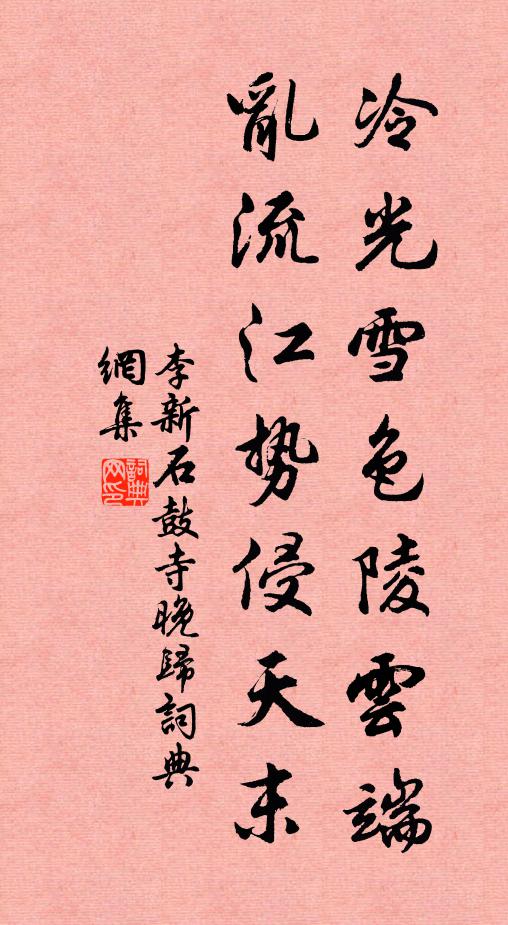 冷光雪色陵雲端
亂流江勢侵天末
李新石鼓寺晚歸詞典
網集
詞典
网印